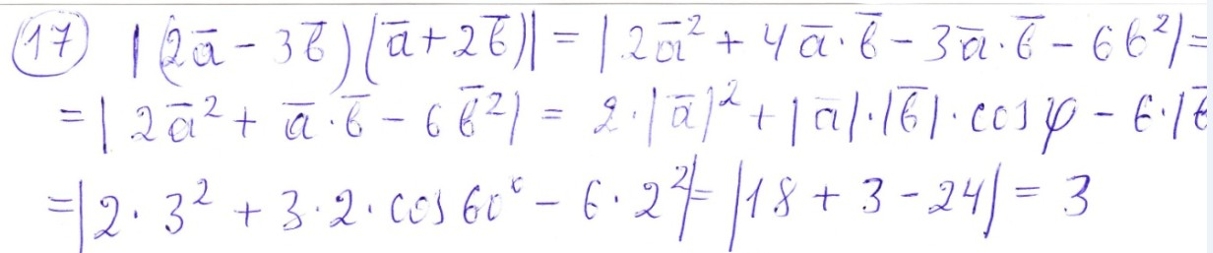 17 |(2a̅ - 3b̅)(a̅ + 2b̅)| = |2a̅² + 4a̅·b̅ - 3a̅·b̅ - 6b²| =
= |2a̅² + a̅·b̅ - 6b̅²| = 2·|a̅|² + |a̅|·|b̅|·cosφ - 6·|b̅
=|2·3² + 3·2·cos60° - 6·2²|= |18 + 3 - 24| = 3